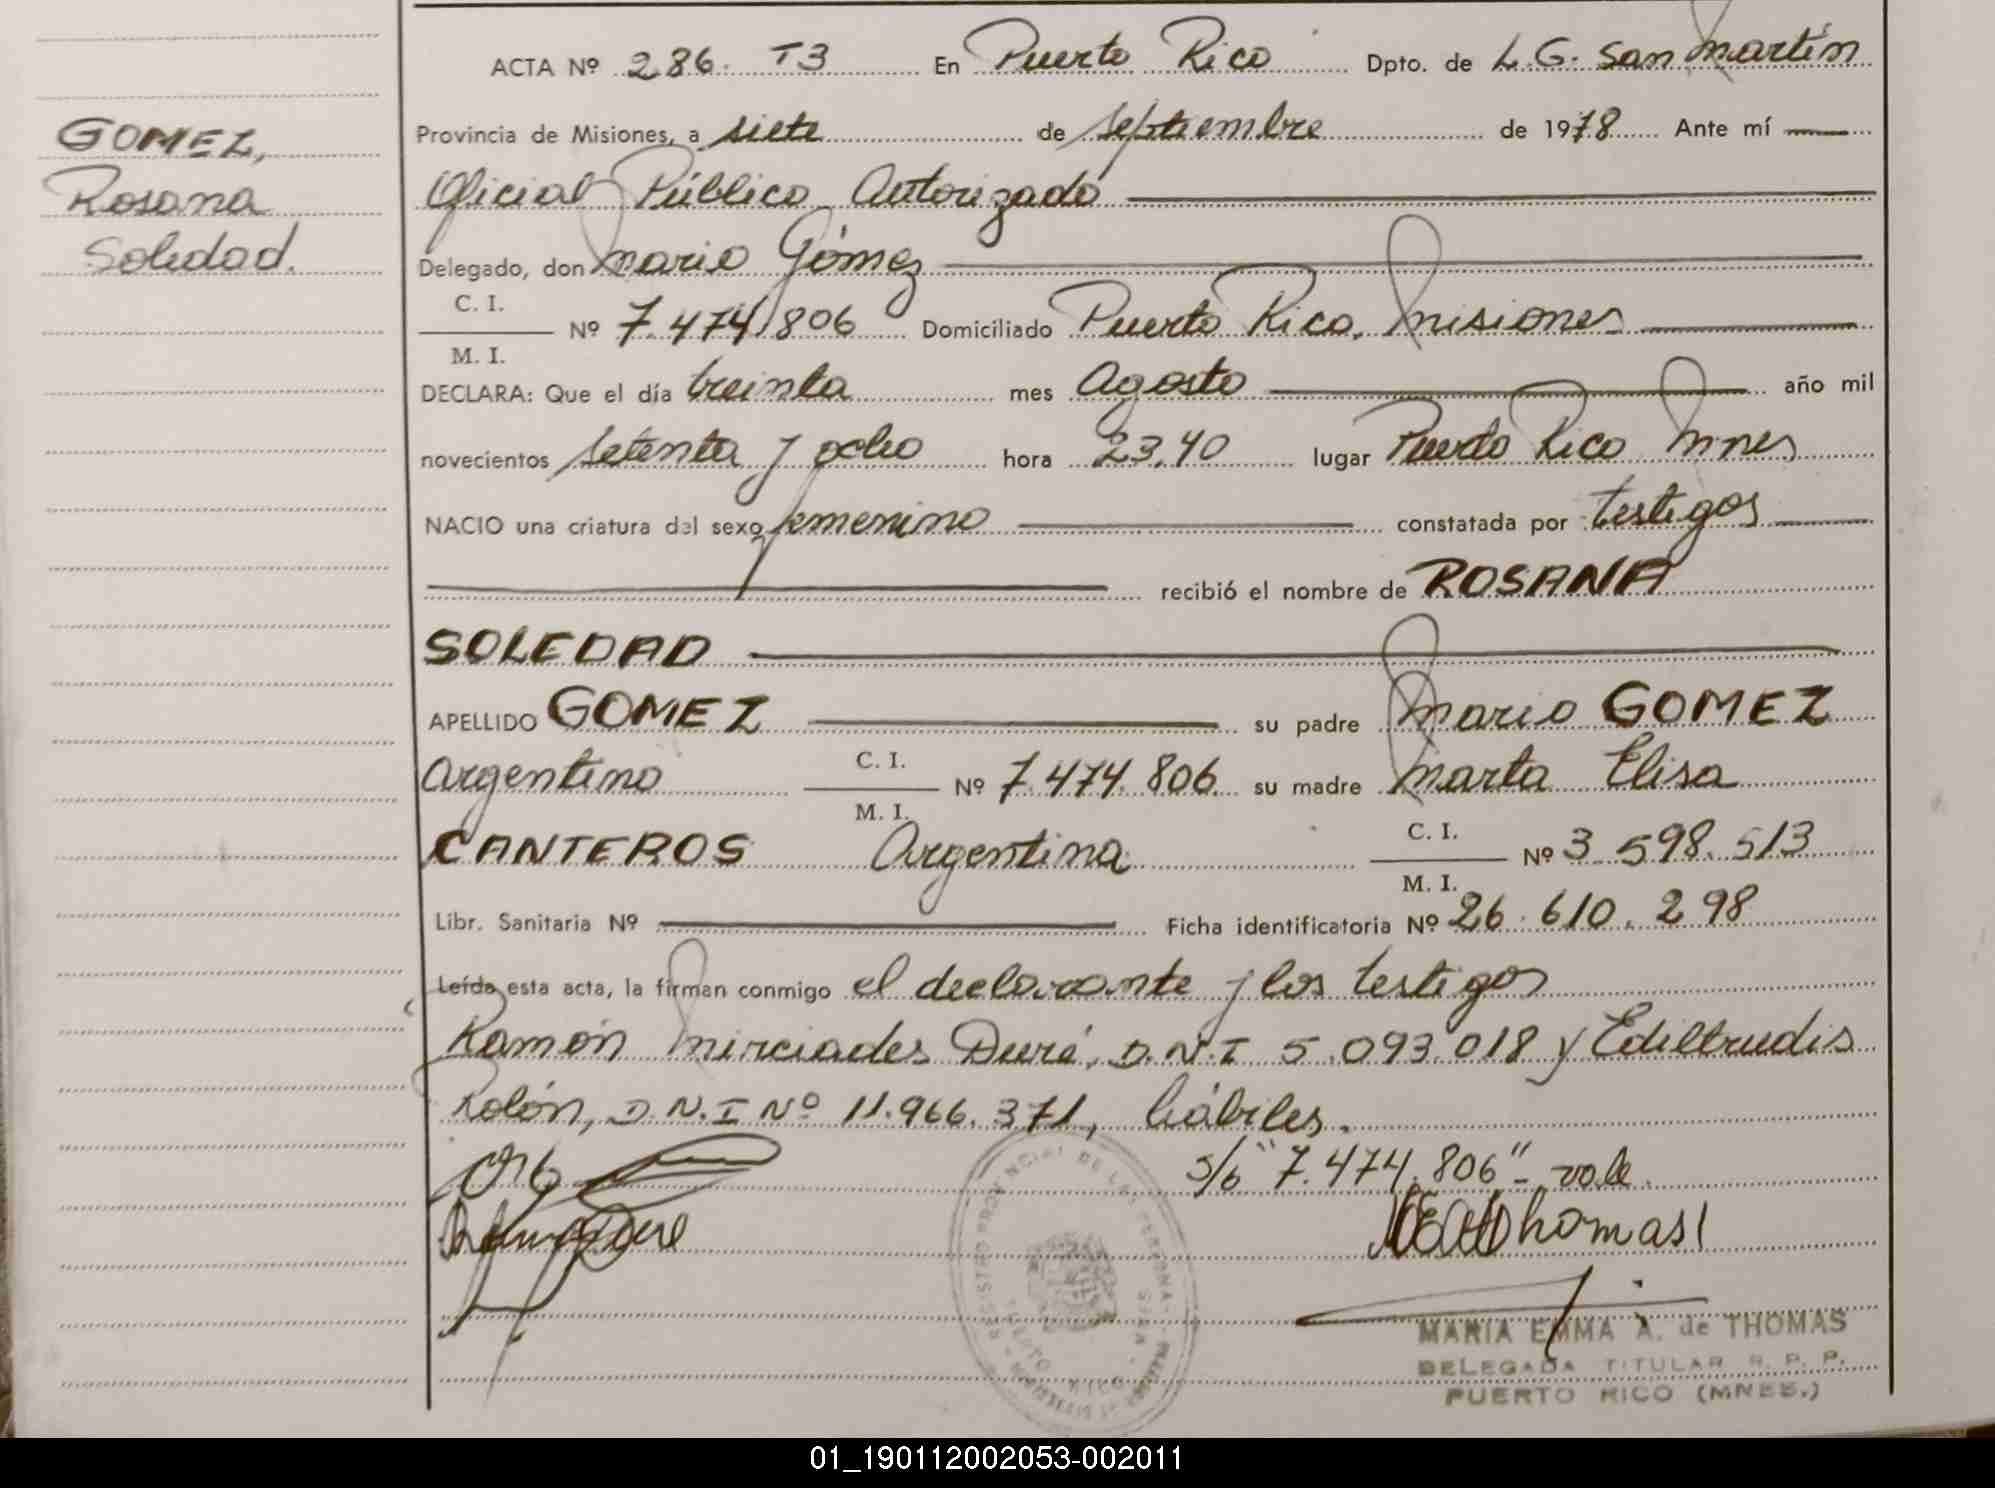 ACTA Nº 286. T3 En Puerto Rico Dpto. de L.G. San Martín
GOMEZ,
Rosana
Soledad.
Provincia de Misiones, a siete de septiembre de 1978 Ante mí
Oficial Público Autorizado
Delegado, don Mario Gómez
C. I.
M. I.
Nº 7.474.806 Domiciliado Puerto Rico, Misiones
DECLARA: Que el día treinta mes Agosto año mil
novecientos setenta y ocho hora 23,40 lugar Puerto Rico Mnes
NACIO una criatura del sexo femenino constatada por testigos
recibió el nombre de ROSANA
SOLEDAD
APELLIDO GOMEZ su padre Mario GOMEZ
Argentino C. I. M. I. Nº 7.474.806 su madre Marta Elisa
CANTEROS Argentina C. I. M. I. Nº 3 598.513
Libr. Sanitaria Nº Ficha identificatoria Nº 26.610.298
Leída esta acta, la firman conmigo el declarante y los testigos
Ramón Mirciades Duré, D.N.I 5.093.018 y Ediltrudis
Kolón, D.N.I Nº 11.966.371, hábiles.
s/b "7.474.806" - vale.
Thomas
REGISTRO PROVINCIAL DE LAS PERSONAS
PUERTO RICO
MARIA EMMA A. de THOMAS
DELEGADA TITULAR R. P. P.
PUERTO RICO (MNES.)
01_190112002053-002011